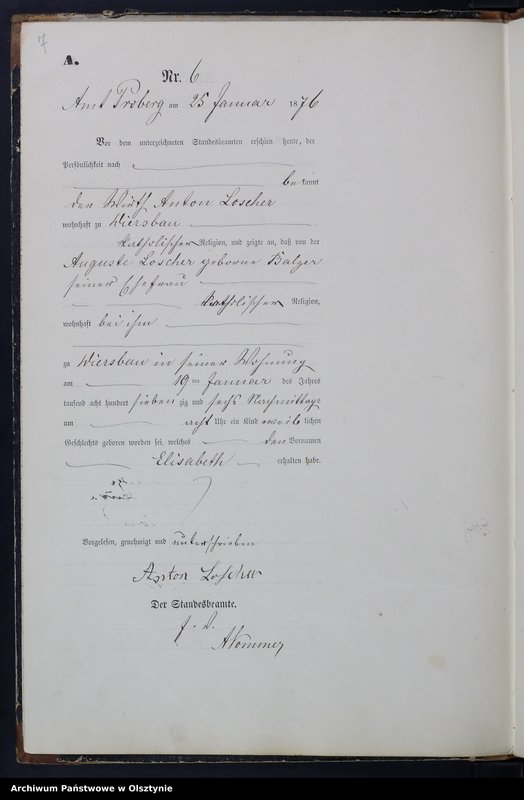 7
A.
Nr. 6
Amt Proberg am 25 Januar 1876
Vor dem unterzeichneten Standesbeamten erschien heute, der
Persönlichkeit nach
bekannt
der Wirth Anton Loscher
wohnhaft zu Wiersbau
katholischer Religion, und zeigte an, daß von der
Auguste Loscher geborne Balzer
seiner Ehefrau
katholischer Religion,
wohnhaft bei ihm
zu Wiersbau in seiner Wohnung
am 19ten Januar des Jahres
tausend acht hundert siebenzig und sechs Nachmittags
um acht Uhr ein Kind weiblichen
Geschlechts geboren worden sei, welches den Vornamen
Elisabeth erhalten habe.
Vorgelesen, genehmigt und unterschrieben
Anton Loscher
Der Standesbeamte.
Archiwum Państwowe w Olsztynie